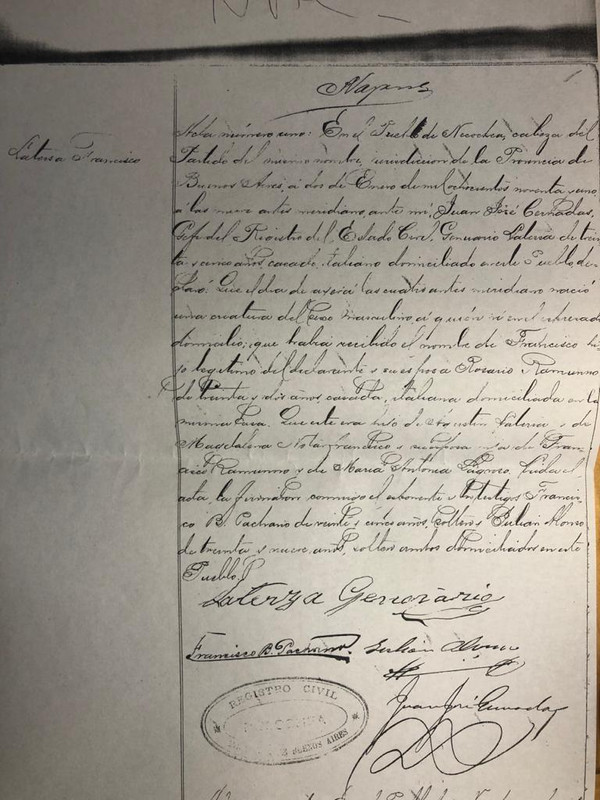 Laterza Francisco
Acta número uno: En el Pueblo de Necochea, cabeza del
Partido del mismo nombre, jurisdiccion de la Provincia de
Buenos Aires, á dos de Enero de mil ochocientos noventa y uno,
á las nueve antes meridiano, ante mí, Juan José Cernadas,
Gefe del Registro del Estado Civil, Genuario Laterza de trein
ta y cinco años, casado, italiano domiciliado en este Pueblo, de
claró: Que el dia de ayer á las cuatro antes meridiano nació
una criatura del sexo masculino, á quién ví en el espresado
domicilio; que habia recibido el nombre de Francisco hi
jo legitimo del declarante y su esposa Rosario Ramunno
de treinta y dos años, casada, italiana domiciliada en la
misma casa. Que este era hijo de Agustin Laterza y de
Magdalena Notarfrancisco y su esposa hija de Fran
cisco Ramunno y de Maria Antonia Leida el
acta la firmaron conmigo el esponente y los testigos Francis
co B. Pachano de veinte y cinco años, soltero y Julián Alonso
de treinta y nueve años, soltero ambos domiciliados en este
Pueblo.
Laterza Genorario
Francisco B. Pachano Julián Alonso
Juan José Cernadas
REGISTRO CIVIL
NECOCHEA
BUENOS AIRES